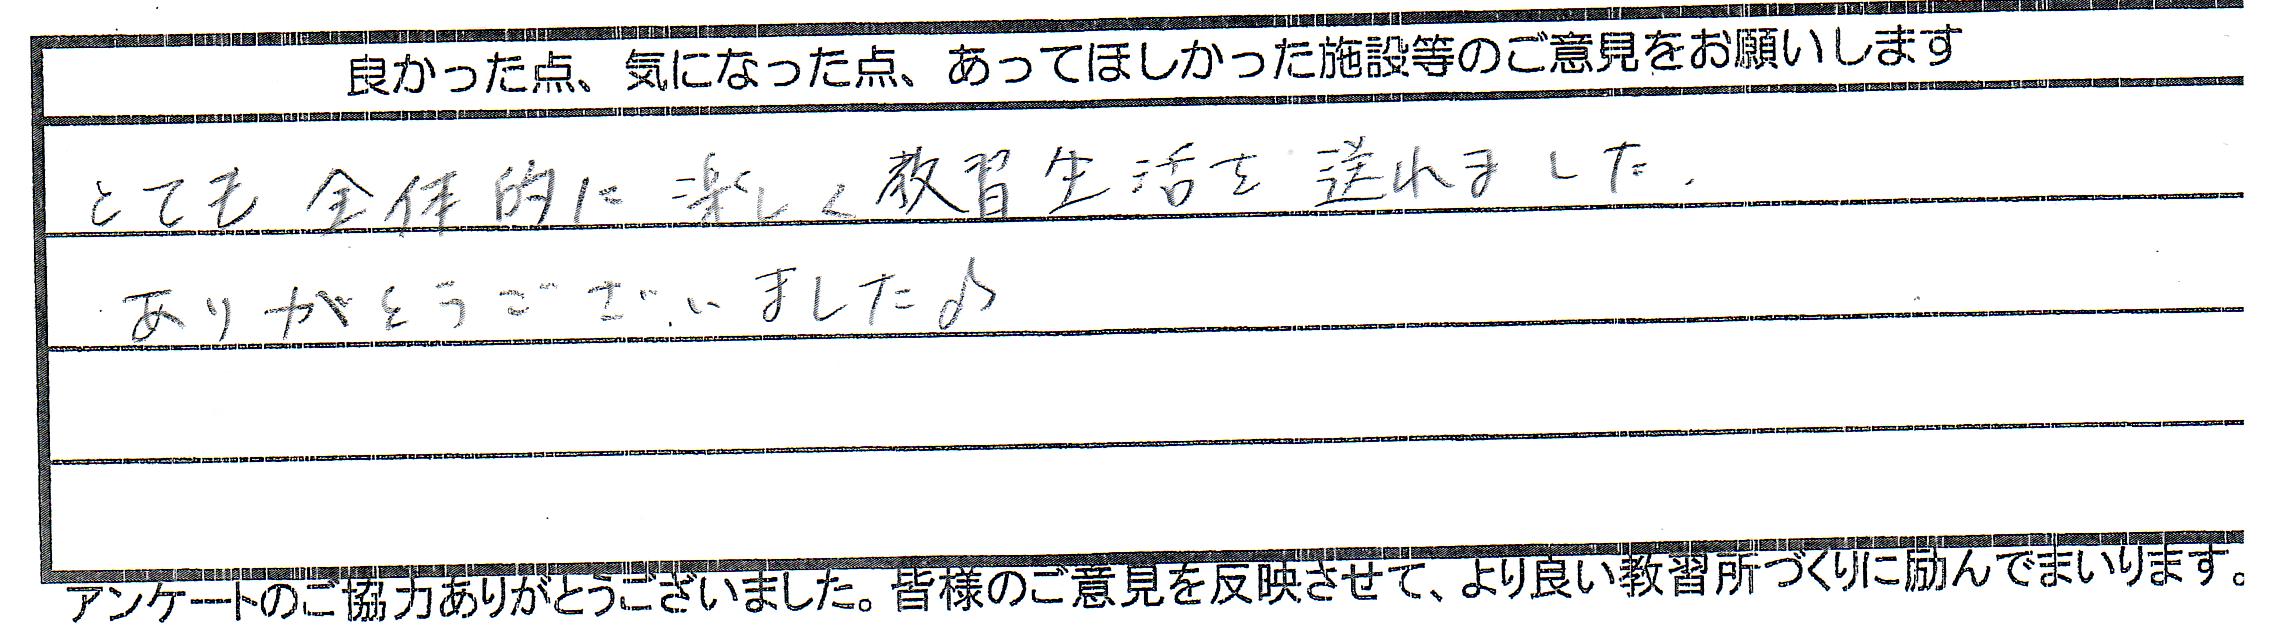 良かった点、気になった点、あってほしかった施設等のご意見をお願いします
とても全体的に楽しく教習生活を送れました.
ありがとうございました♪
アンケートのご協力ありがとうございました。皆様のご意見を反映させて、より良い教習所づくりに励んでまいります。